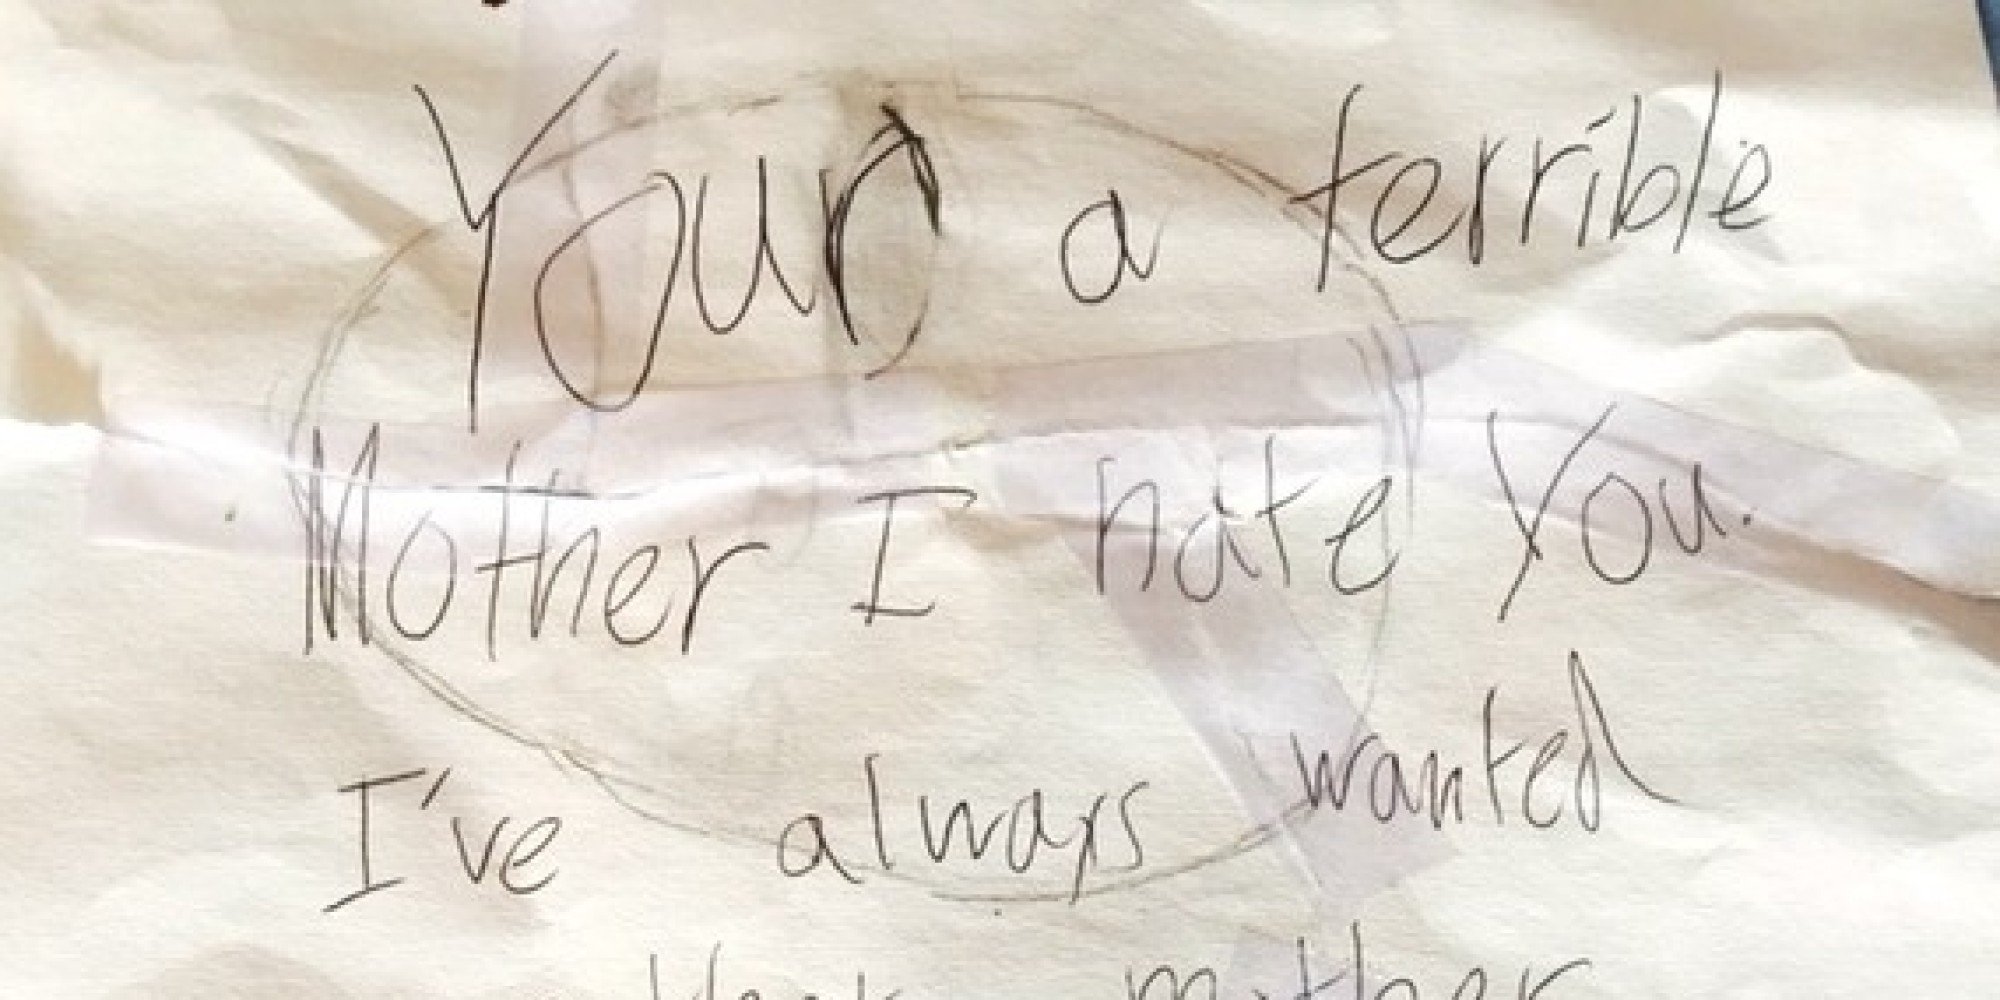 Your a terrible
Mother I hate You.
I've always wanted
mother